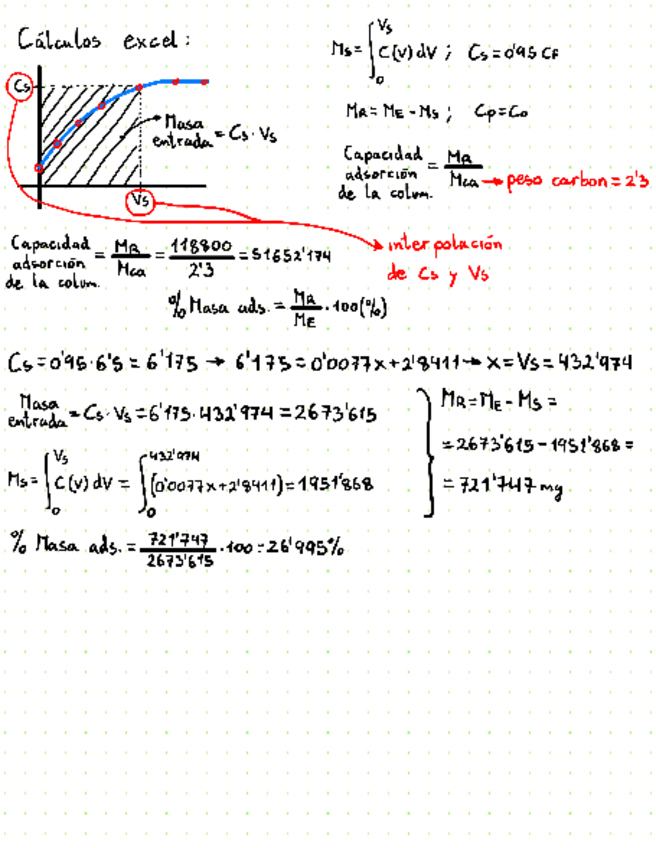 Cálculos excel:
Ms = ∫₀^Vs C(v) dV ; Cs = 0'95 CF
Cs
Masa entrada = Cs · Vs
Vs
MR = ME - Ms ; Cp = Co
Capacidad adsorción de la colum. = MR / Mca → peso carbon = 2'3
interpolación
de Cs y Vs
Capacidad adsorción de la colum. = MR / Mca = 118800 / 2'3 = 51652'174
% Masa ads. = MR / ME · 100 (%)
Cs = 0'95 · 6'5 = 6'175 → 6'175 = 0'0077x + 2'8411 → x = Vs = 432'974
Masa entrada = Cs · Vs = 6'175 · 432'974 = 2673'615
Ms = ∫₀^Vs C(v) dV = ∫₀^432'974 (0'0077x + 2'8411) = 1951'868
MR = ME - Ms =
= 2673'615 - 1951'868 =
= 721'747 mg
% Masa ads. = 721'747 / 2673'615 · 100 = 26'995%